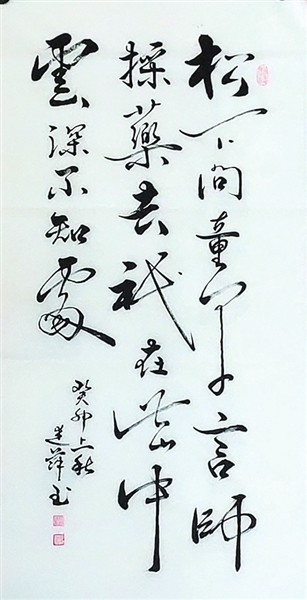 松下問童子言師
採藥去祇在此山中
雲深不知處
癸卯上秋
書